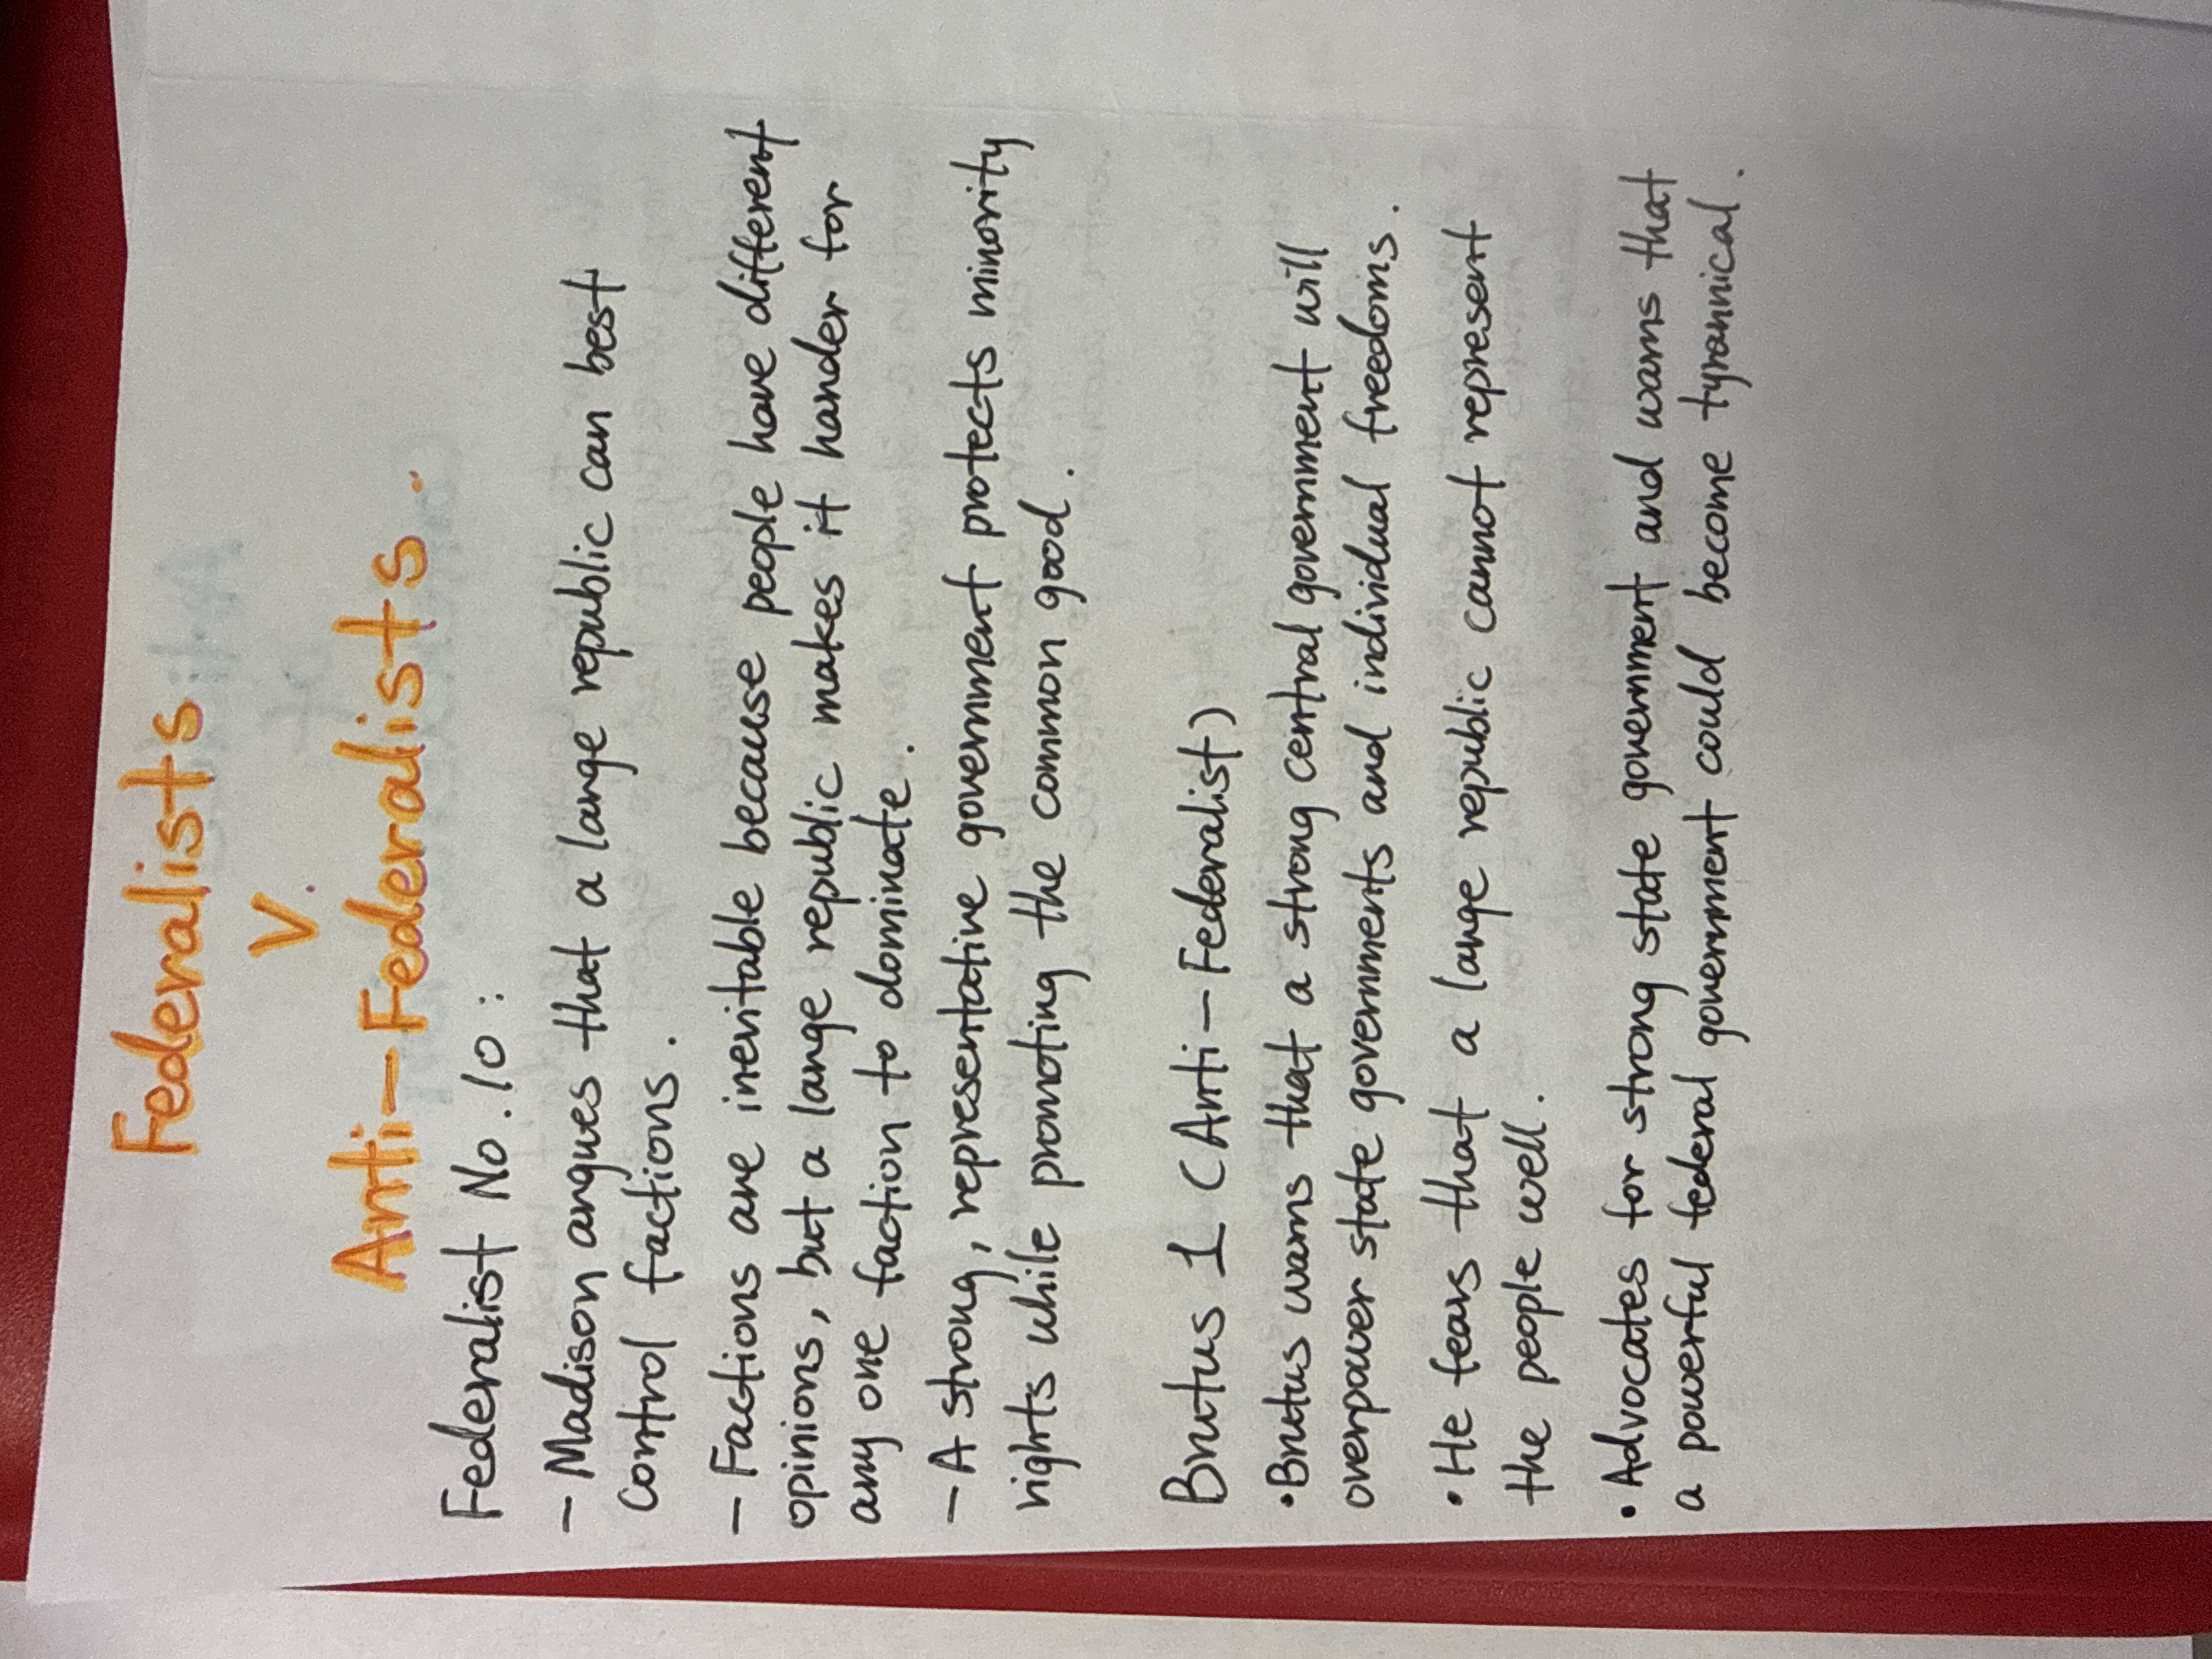 Federalists
V.
Anti-Federalists.
Federalist No. 10:
- Madison argues that a large republic can best
control factions.
- Factions are inevitable because people have different
opinions, but a large republic makes it harder for
any one faction to dominate.
- A strong, representative government protects minority
rights while promoting the common good.
Brutus 1 (Anti-Federalist)
• Brutus warns that a strong central government will
overpower state governments and individual freedoms.
• He fears that a large republic cannot represent
the people well.
• Advocates for strong state government and warns that
a powerful federal government could become tyrannical.